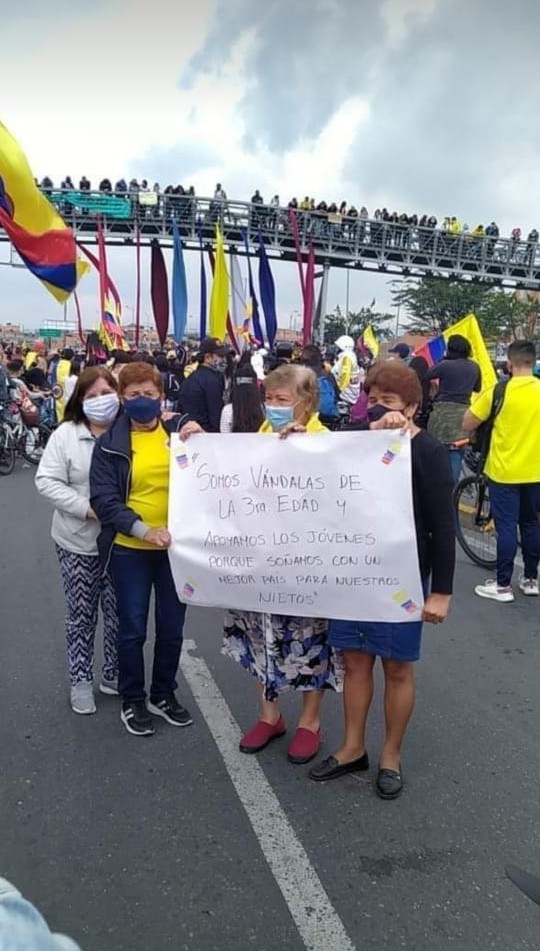 "SOMOS VÁNDALAS DE
LA 3ra EDAD Y
APOYAMOS LOS JÓVENES
PORQUE SOÑAMOS CON UN
MEJOR PAÍS PARA NUESTROS
NIETOS"